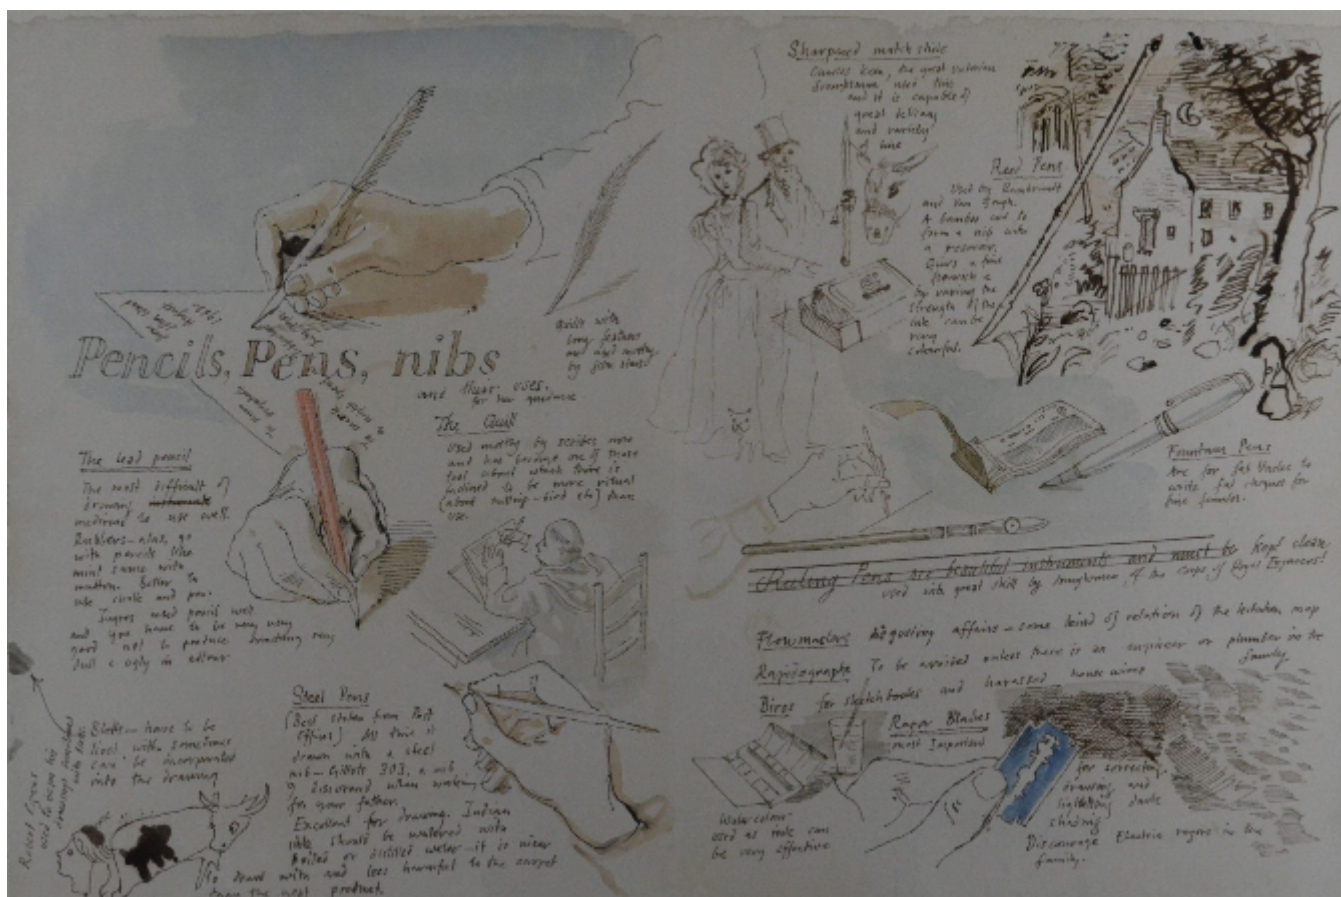 Pencils, Pens, nibs
and their uses.
for your guidance
The lead pencil
The most difficult of
drawing
mediums to use well.
Rubbers – alas, go
with pencils like
mint sauce with
mutton. Better to
use chalk and pen.
Ingres used pencil well
and you have to be very very
good not to produce something very
dull & ugly in colour
Quills with
long feathers
are used mostly
by film stars
The Quill
Used mostly by scribes now
and has become one of those
tool about which there is
inclined to be more ritual
(about cutting – bird etc) than
use.
Steel Pens
(Best stolen from Post
Offices) All this is
drawn with a steel
nib – Gillott 303, a nib
I discovered when working
for your father.
Excellent for drawing. Indian
ink should be watered with
boiled or distilled water – it is nicer
to draw with and less harmful to the carpet
than the neat product.
Blots – have to be
lived with sometimes
can be incorporated
into the drawing
used to
drawings
with
Sharpened match stick
Charles Keen, the great victorian
draughtsman used this
and it is capable of
great delicacy
and variety
of line
Reed Pens
Used by Rembrandt
and Van Gogh.
A bamboo cut to
form a nib with
a
Gives a fine
flourish &
by varying the
strength of the
ink can be
very
colourful.
Fountain Pens
Are for fat Uncles to
write fat cheques for
fine
Ruling Pens are beautiful instruments and must be kept clean,
used with great skill by draughtsmen of the corps of Royal Engineers!
Flowmasters disgusting affairs – some kind of relation of the
Rapidographs To be avoided unless there is an engineer or plumber in the
family
Biros for sketchbooks and harassed house wives
Razor Blades
most Important
for correcting
drawings and
lightening dark
shading
Discourage Electric razors in the
family.
Watercolour
used as ink can
be very effective